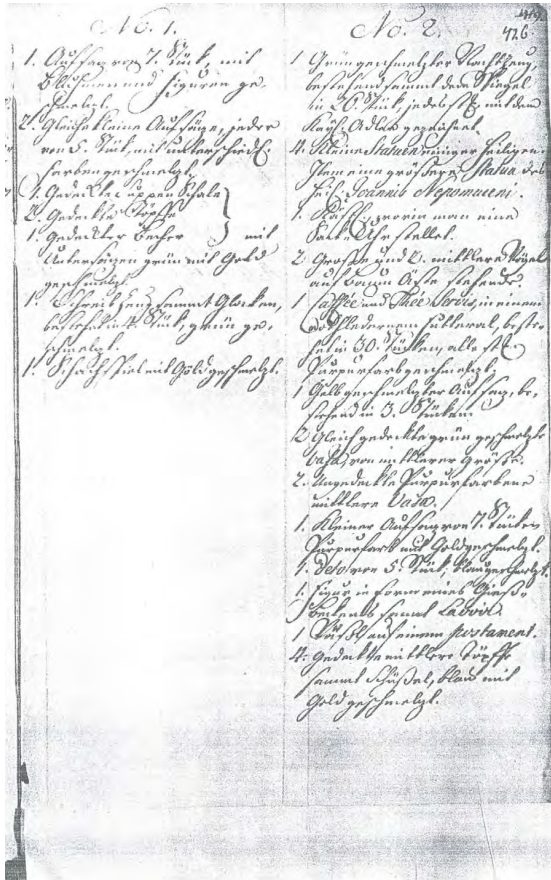 419
426
No. 1.
1. Aufsaz von 7. Stük, mit
Bluhmen und Figuren ge-
schmelzt.
2. Gleiche kleine Aufsäze, jeder
von 5. Stük, mit unterschiedl.
farben geschmelzt.
1. Gedekte Suppen Schale
2. Gedekte Töpffe
1. Gedekter Becher mit
Untersazen grün mit Gold
geschmelzt.
1. Schreibzeug sammt Gloken,
bestehet in Stük, grün ge-
schmelzt.
1. Schachspiel mit Gold geschmelzt.
No. 2.
1 Grün geschmelzter Nachtzeug,
bestehend sammt dem Spiegel
in Stük, jedes mit dem
Kays. Adler gezeichnet.
4. Kleine Statuen einiger Heiligen
Item eine grössere Statua des
Heil. Joannis Nepomuceni.
1. worin man eine
Sak Uhr stellet.
2 Grosse und 2. mittlere Vögel
auf Baum Äste stehende.
1 Caffée und Thée Servis, in einem
ledernem futteral, beste-
het in 30. Stüken, alle
Purpurfarb geschmelzt.
1 Gelb geschmelzter Aufsaz, be-
stehend in 3. Stüken.
2 Gleich gedekte grün geschmelzte
Vasa, von mittlerer Grösse.
2. Ungedekte Purpurfarbene
mittlere Vasa.
1. Kleiner Aufsaz von 7. Stüken
Purpurfarb mit Gold geschmelzt.
1. deto von 5. Stük, blau geschmelzt.
1. Figur in form eines Gieß-
Bekens sammt Lavoir.
1 auf einem postament.
4. Gedekte mittlere Töpffe
sammt Schüßel, blau mit
Gold geschmelzt.